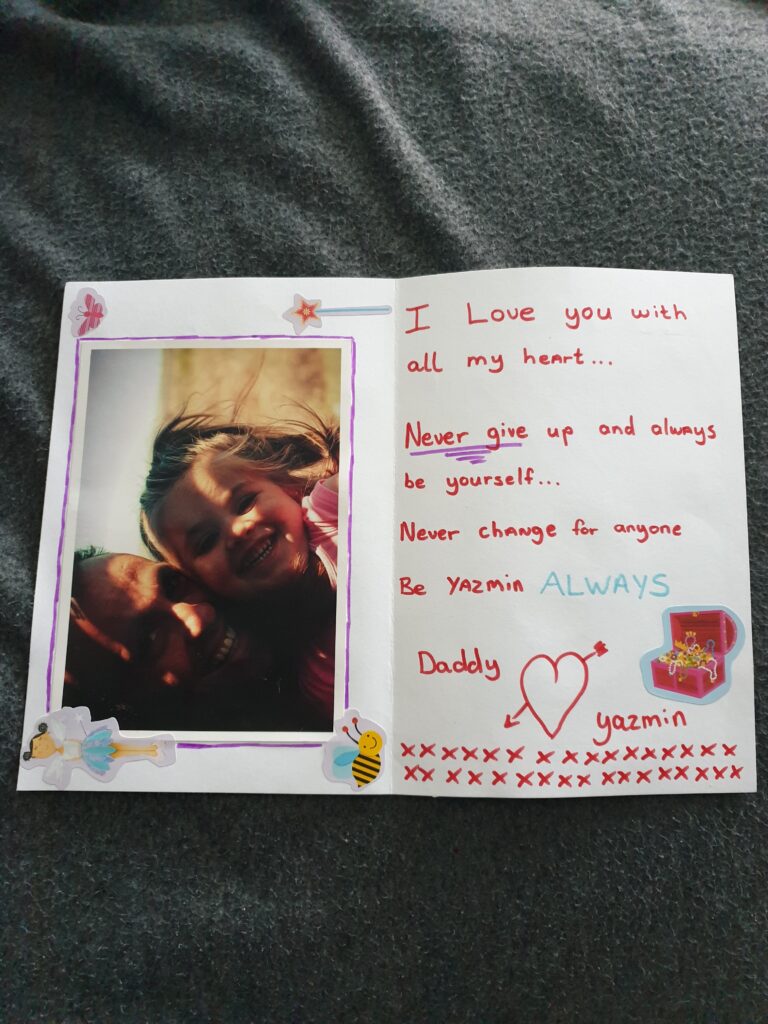 I Love you with
all my heart...
Never give up and always
be yourself...
Never change for anyone
Be Yazmin ALWAYS
Daddy
yazmin
xxxxxx xxxxxxxxxx
xx xxx xxxx xxxxxxx